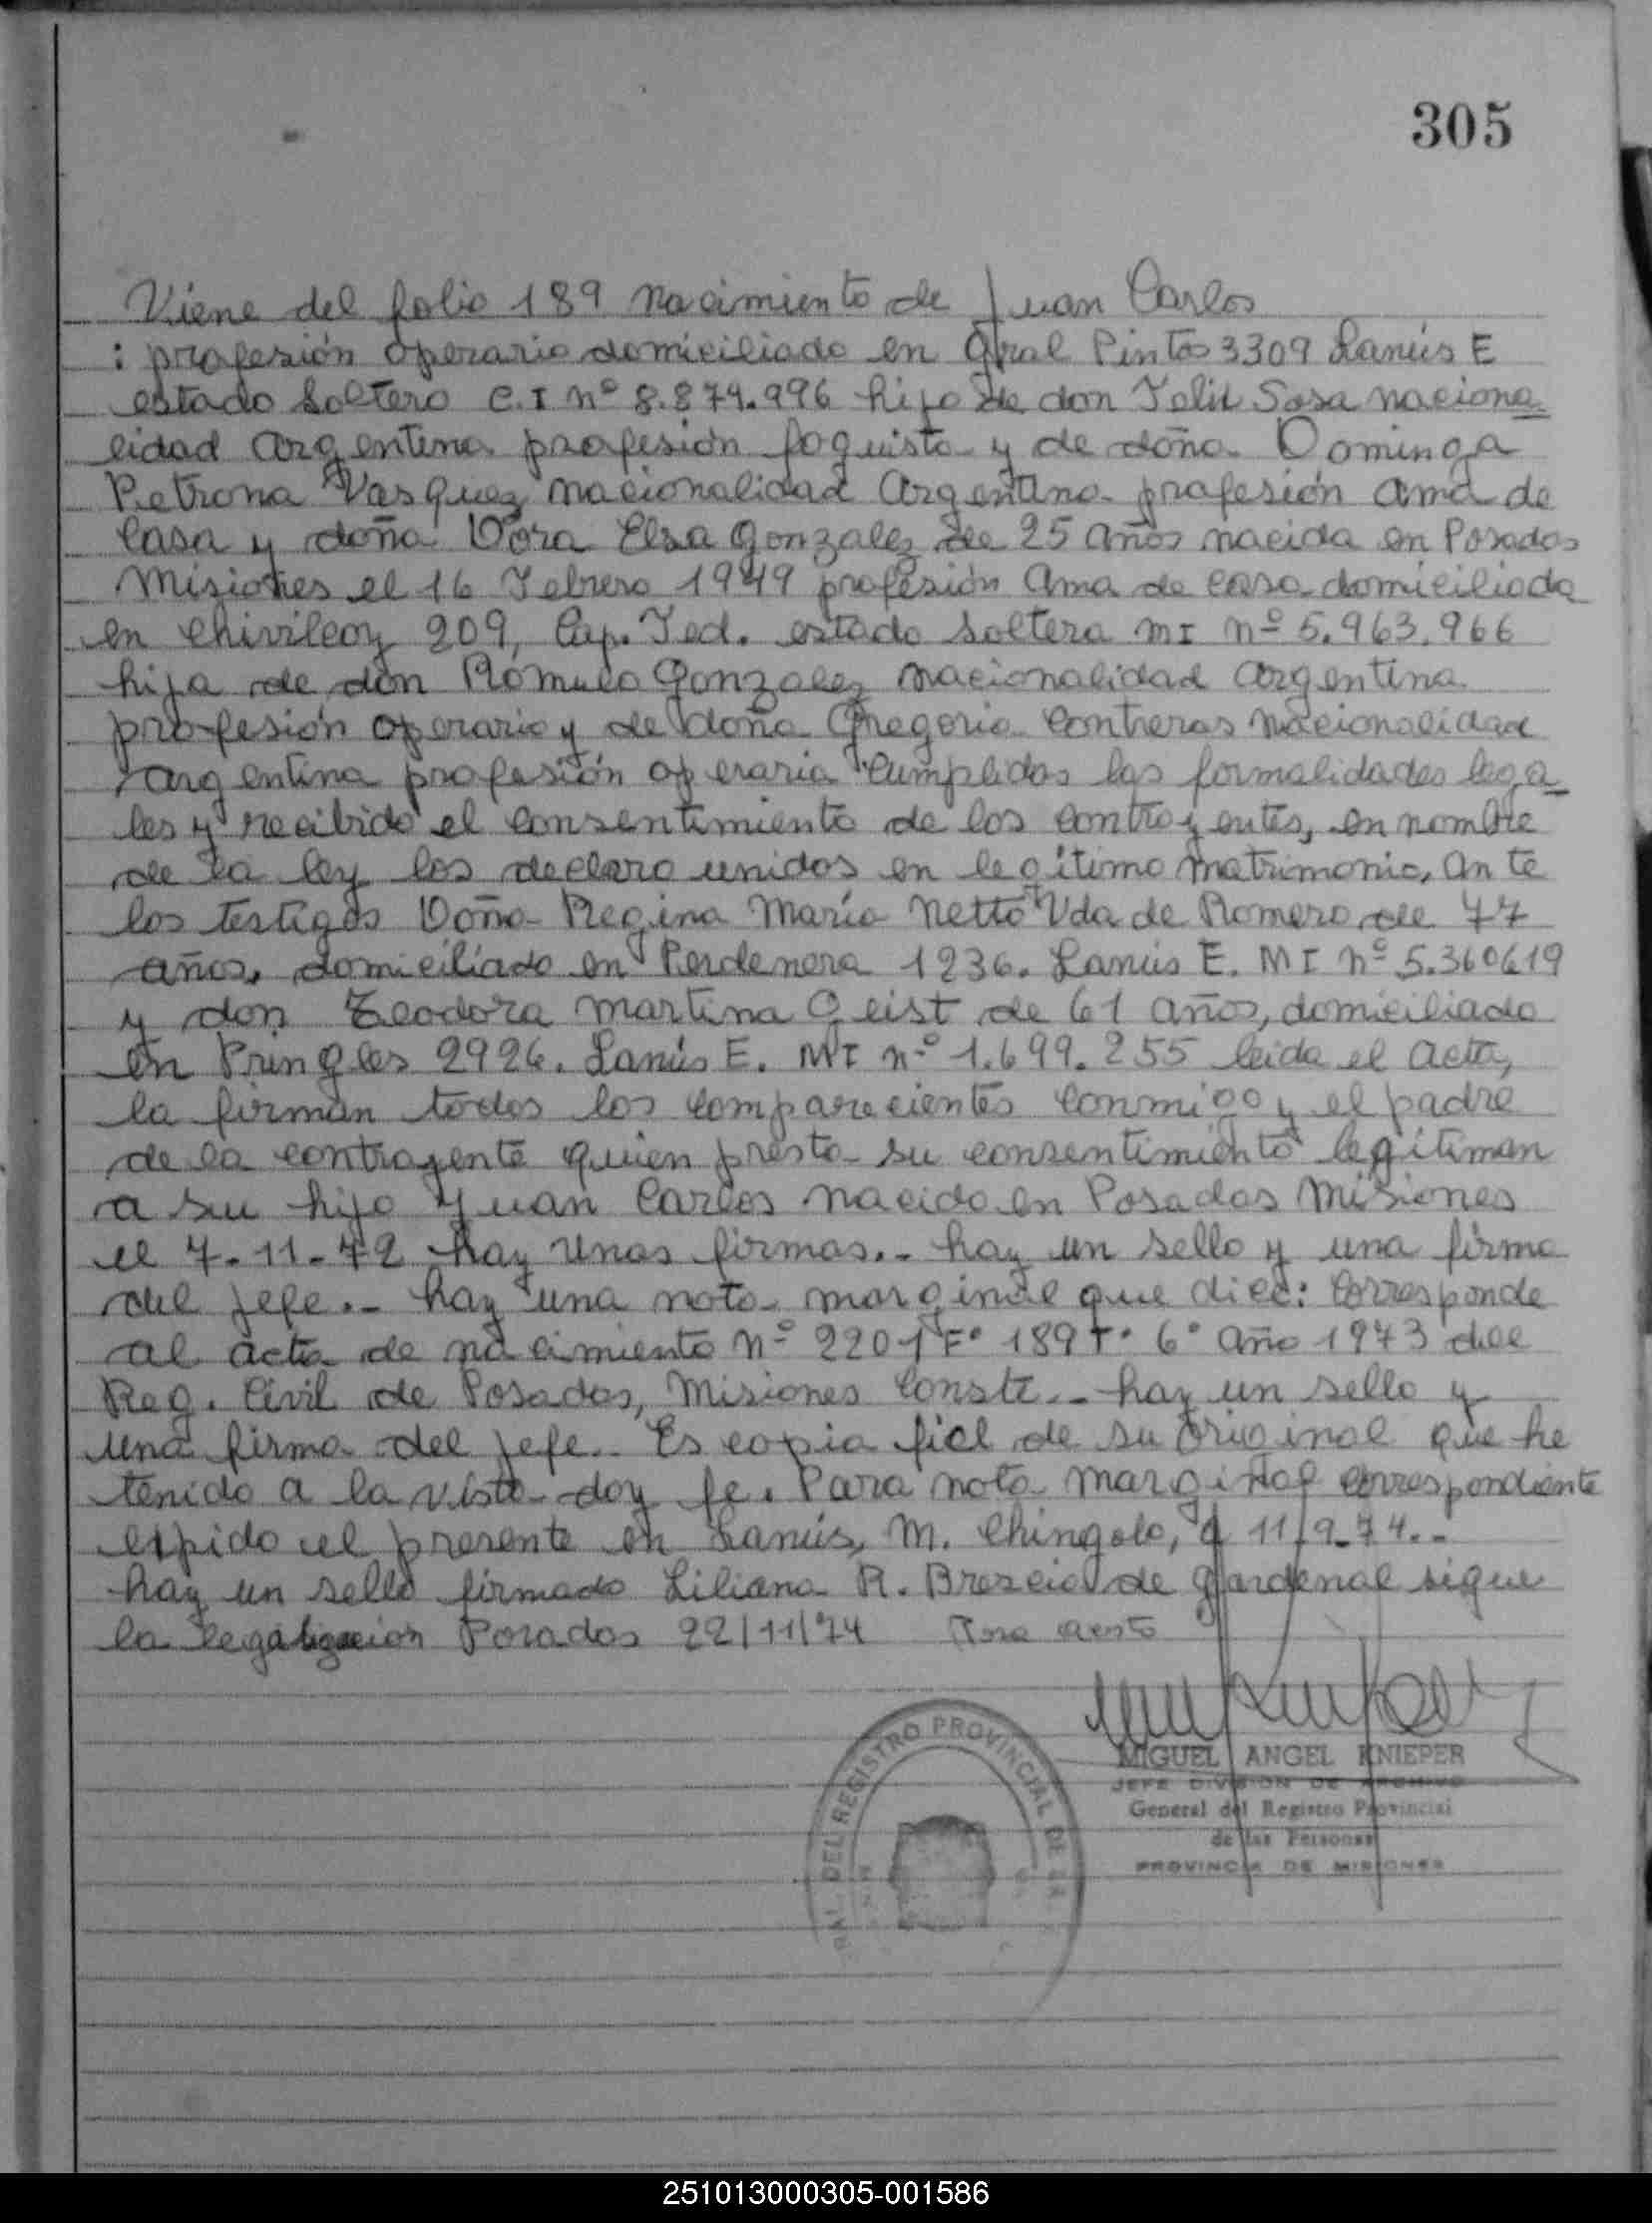 305
Viene del folio 189 nacimiento de Juan Carlos
: profesión operario domiciliado en Gral Pintos 3309 Lanús E
estado soltero C.I nº 8.874.996 hijo de don Felix Sosa naciona
lidad argentina profesión foguista y de doña Dominga
Petrona Vasquez nacionalidad argentina profesión ama de
casa y doña Dora Elsa Gonzalez de 25 años nacida en Posadas
Misiones el 16 Febrero 1949 profesión ama de casa domiciliada
en Chivilcoy 209, Cap. Fed. estado soltera MI nº 5.963.966
hija de don Rómulo Gonzalez nacionalidad argentina
profesión operario y de doña Gregoria Contreras nacionalidad
argentina profesión operaria cumplidas las formalidades lega
les y recibido el consentimiento de los contrayentes, en nombre
de la ley los declaro unidos en legítimo matrimonio, ante
los testigos Doña Regina María Netto Vda de Romero de 47
años, domiciliado en Perdenera 1236. Lanús E. MI nº 5.360619
y don Teodora Martina Geist de 61 años, domiciliado
en Pringles 2926. Lanús E. MI nº 1.699.255 leida el acta,
la firman todos los comparecientes conmigo y el padre
de la contrayente quien presta su consentimiento legitiman
a su hijo Juan Carlos nacido en Posadas Misiones
el 7-11-72 hay unas firmas.- hay un sello y una firma
del jefe.- hay una nota marginal que dice: Corresponde
al acta de nacimiento nº 2201 Fº 189 Tº 6º año 1973 del
Reg. Civil de Posadas, Misiones Conste.- hay un sello y
una firma del jefe.. Es copia fiel de su original que he
tenido a la vista doy fe. Para nota marginal correspondiente
expido el presente en Lanús, M. Chingolo, a 11/9-74..
hay un sello firmado Liliana R. Brescia de Gardenal sigue
la legalización Posadas 22/11/74
MIGUEL ANGEL KNIEPER
JEFE DIVISION DE ARCHIVO
General del Registro Provincial
de las Personas
PROVINCIA DE MISIONES
DEL REGISTRO PROVINCIAL DE
251013000305-001586